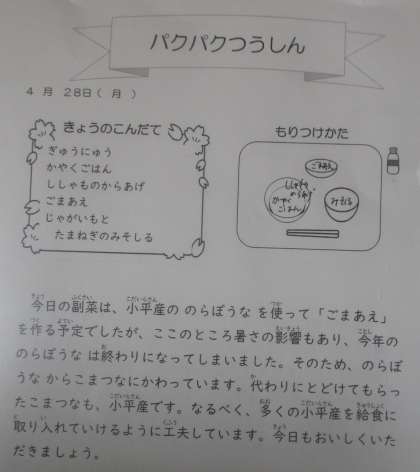 パクパクつうしん
4 月 28日( 月 )
きょうのこんだて
ぎゅうにゅう
かやくごはん
ししゃものからあげ
ごまあえ
じゃがいもと
たまねぎのみそしる
もりつけかた
ごまあえ
ししゃもの
からあげ
かやく
ごはん
みそしる
今日の副菜は、小平産の のらぼうな を使って「ごまあえ」
を作る予定でしたが、ここのところ暑さの影響もあり、今年の
のらぼうな は終わりになってしまいました。そのため、のらぼ
うな からこまつなにかわっています。代わりにとどけてもらっ
たこまつなも、小平産です。なるべく、多くの小平産を給食に
取り入れていけるように工夫しています。今日もおいしくいた
だきましょう。